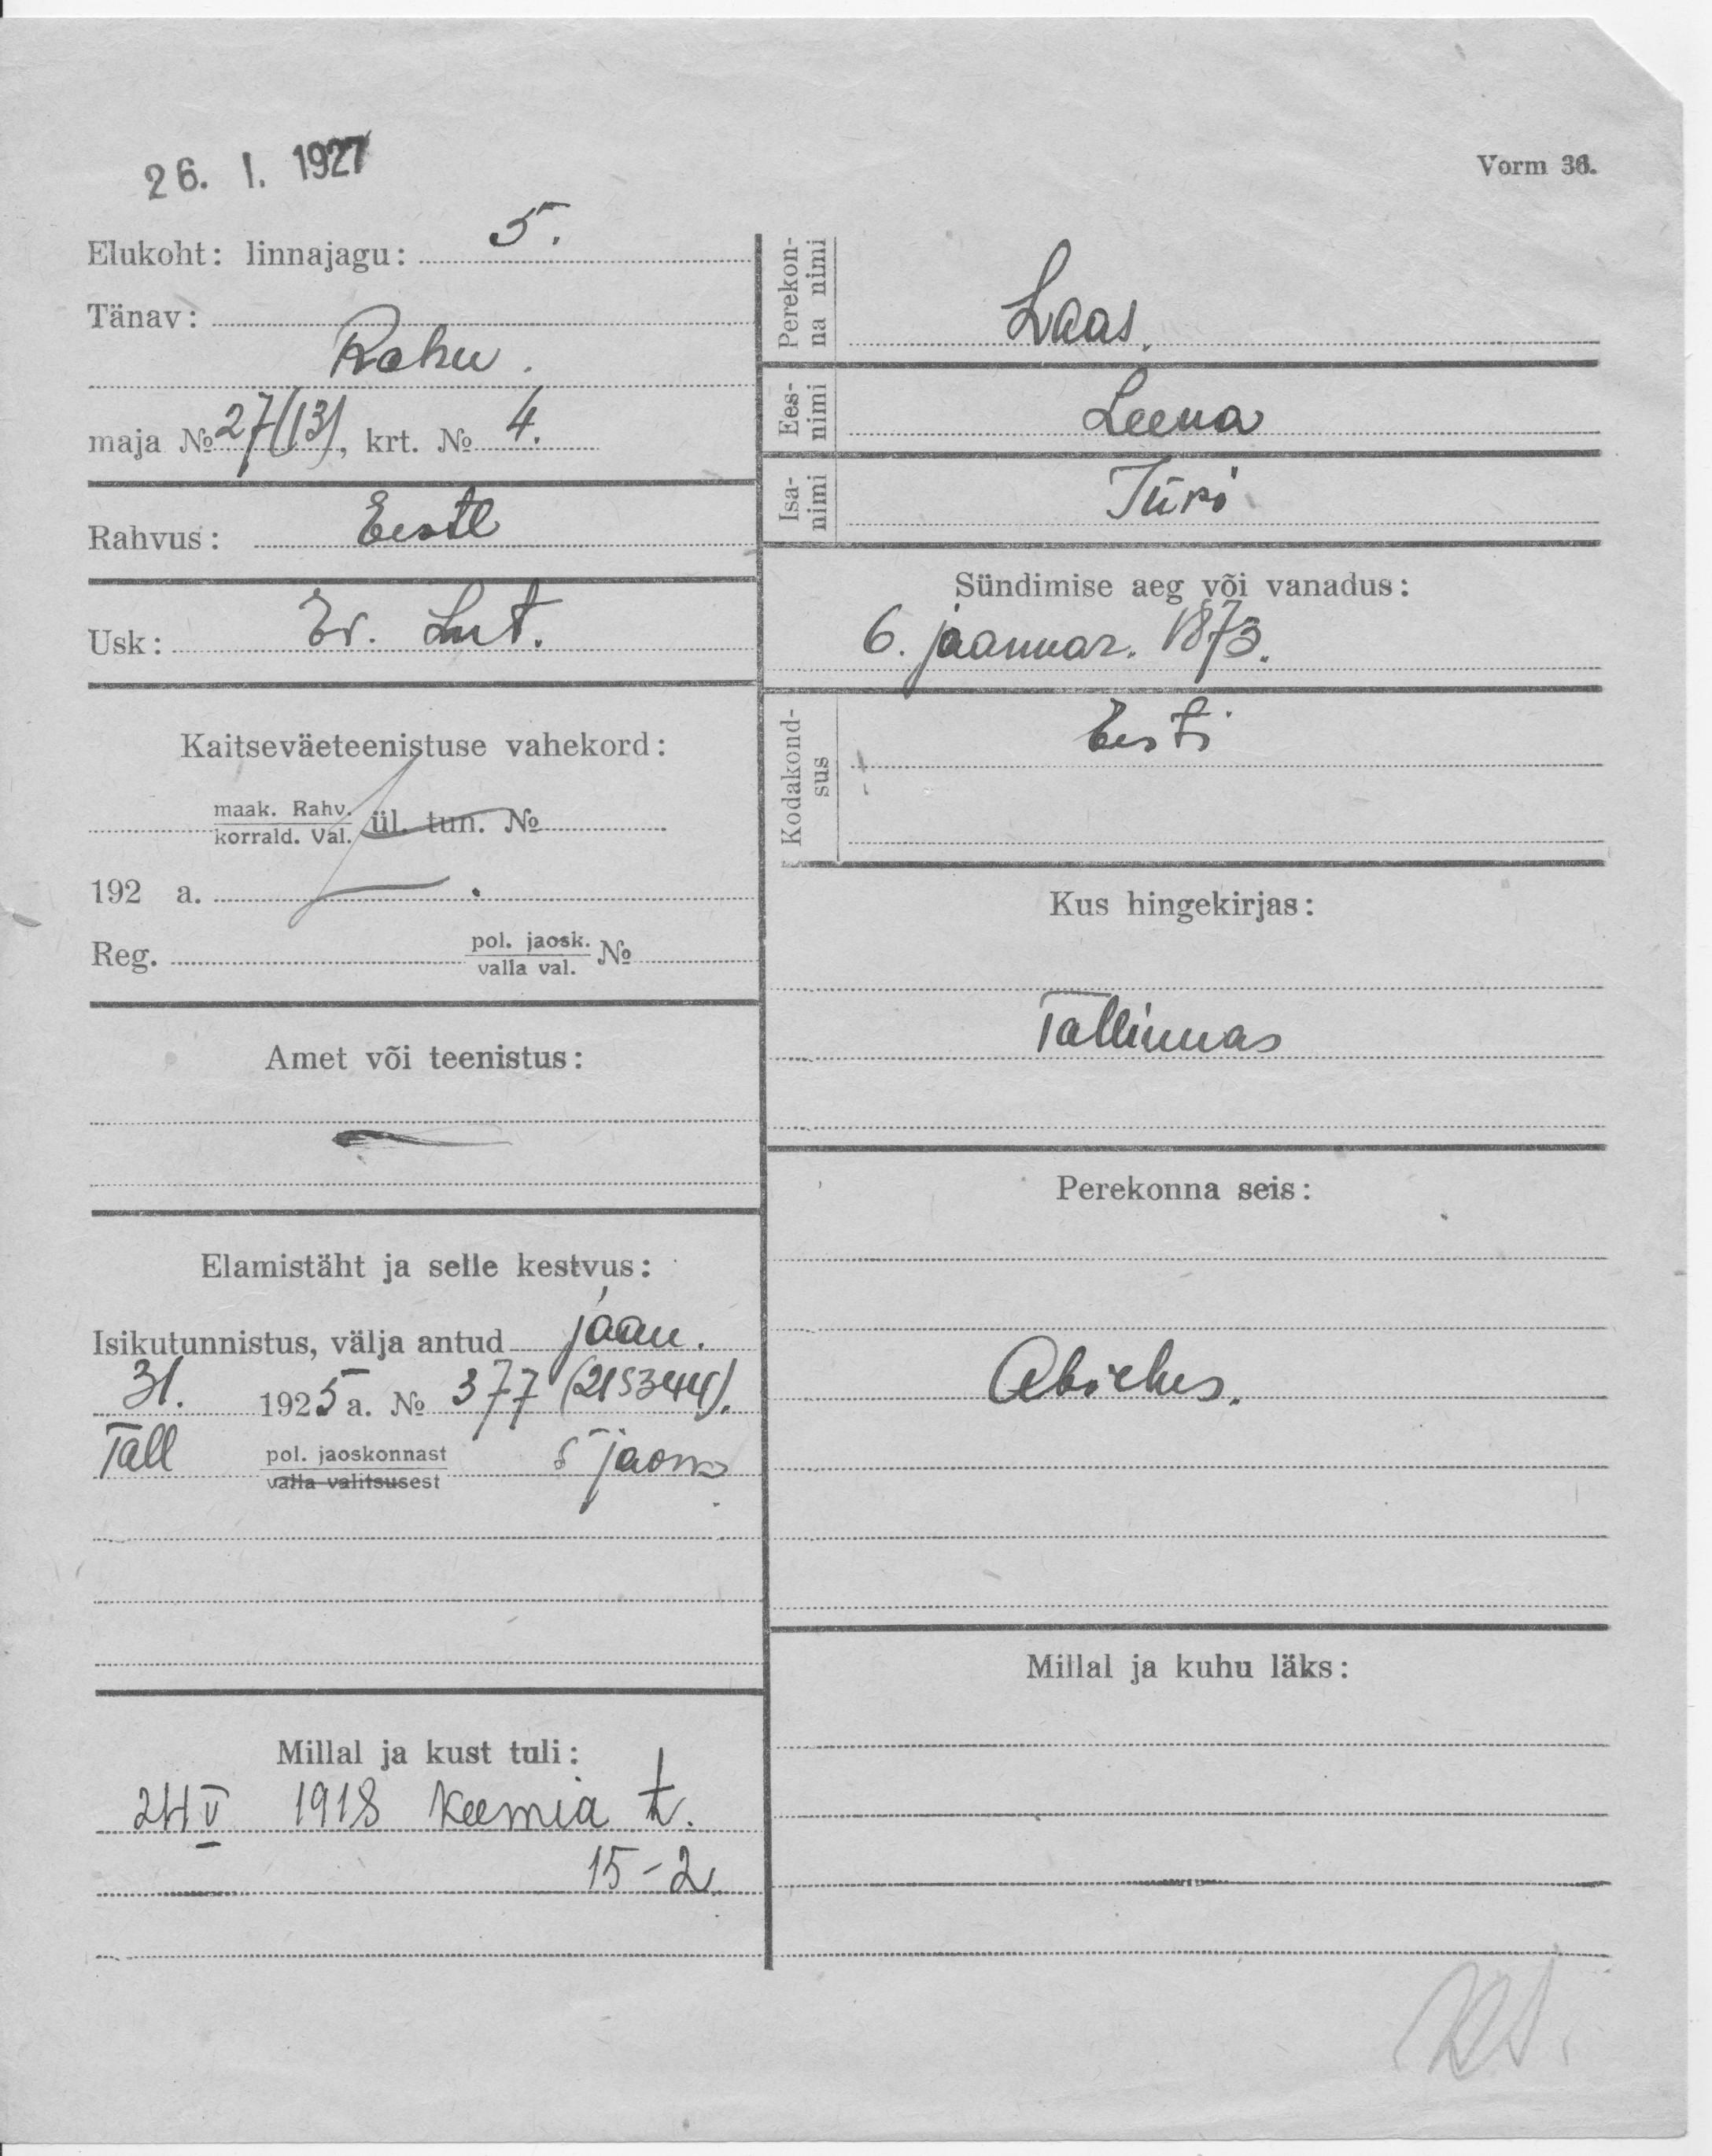 26. I. 1927
Vorm 36.
Elukoht: linnajagu: 5.
Tänav:
Rahu.
maja № 27/(13), krt. № 4.
Rahvus: Eestl
Usk: Ev. Lut.
Kaitseväeteenistuse vahekord:
maak. Rahv.
korrald. Val. ül. tun. №
192 a.
Reg. pol. jaosk. №
valla val.
Amet või teenistus:
Elamistäht ja selle kestvus:
Isikutunnistus, välja antud jaan.
31. 1925 a. № 377 (215344).
Tall pol. jaoskonnast 5 jaosk
valla valitsusest
Millal ja kust tuli:
24 V 1918 Keemia t.
15-2.
Perekon-
na nimi
Laas.
Ees-
nimi
Leena
Isa-
nimi
Jüri
Sündimise aeg või vanadus:
6. jaanuar. 1873.
Kodakond-
sus
Eesti
Kus hingekirjas:
Tallinnas
Perekonna seis:
Abielus.
Millal ja kuhu läks: